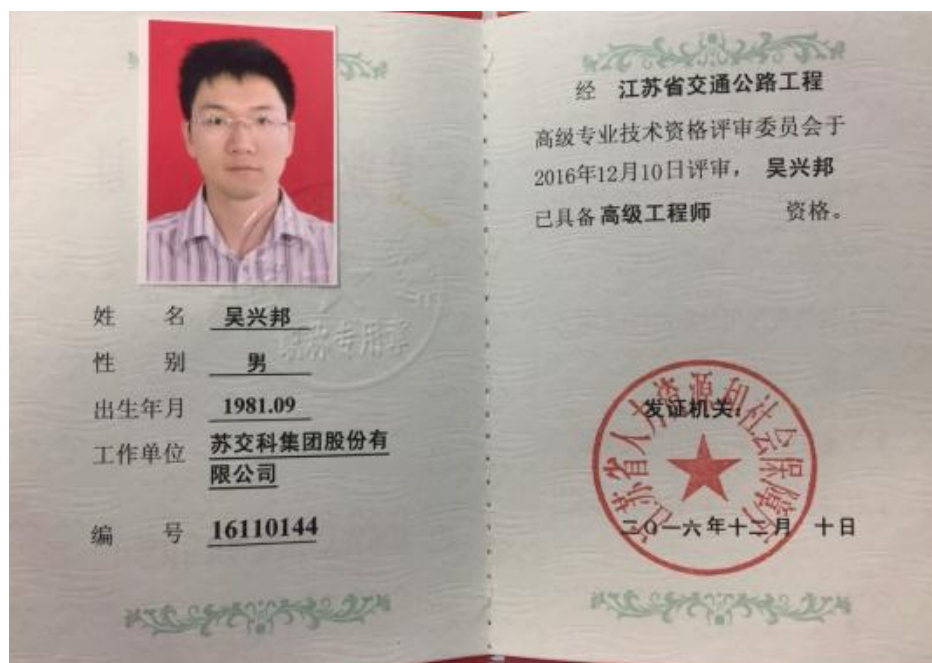 姓 名 吴兴邦
性 别 男
出生年月 1981.09
工作单位 苏交科集团股份有
限公司
编 号 16110144
职称专用章
经 江苏省交通公路工程
高级专业技术资格评审委员会于
2016年12月10日评审， 吴兴邦
已具备高级工程师 资格。
江苏省人力资源和社会保障厅
发证机关：
二〇一六年十二月 十日